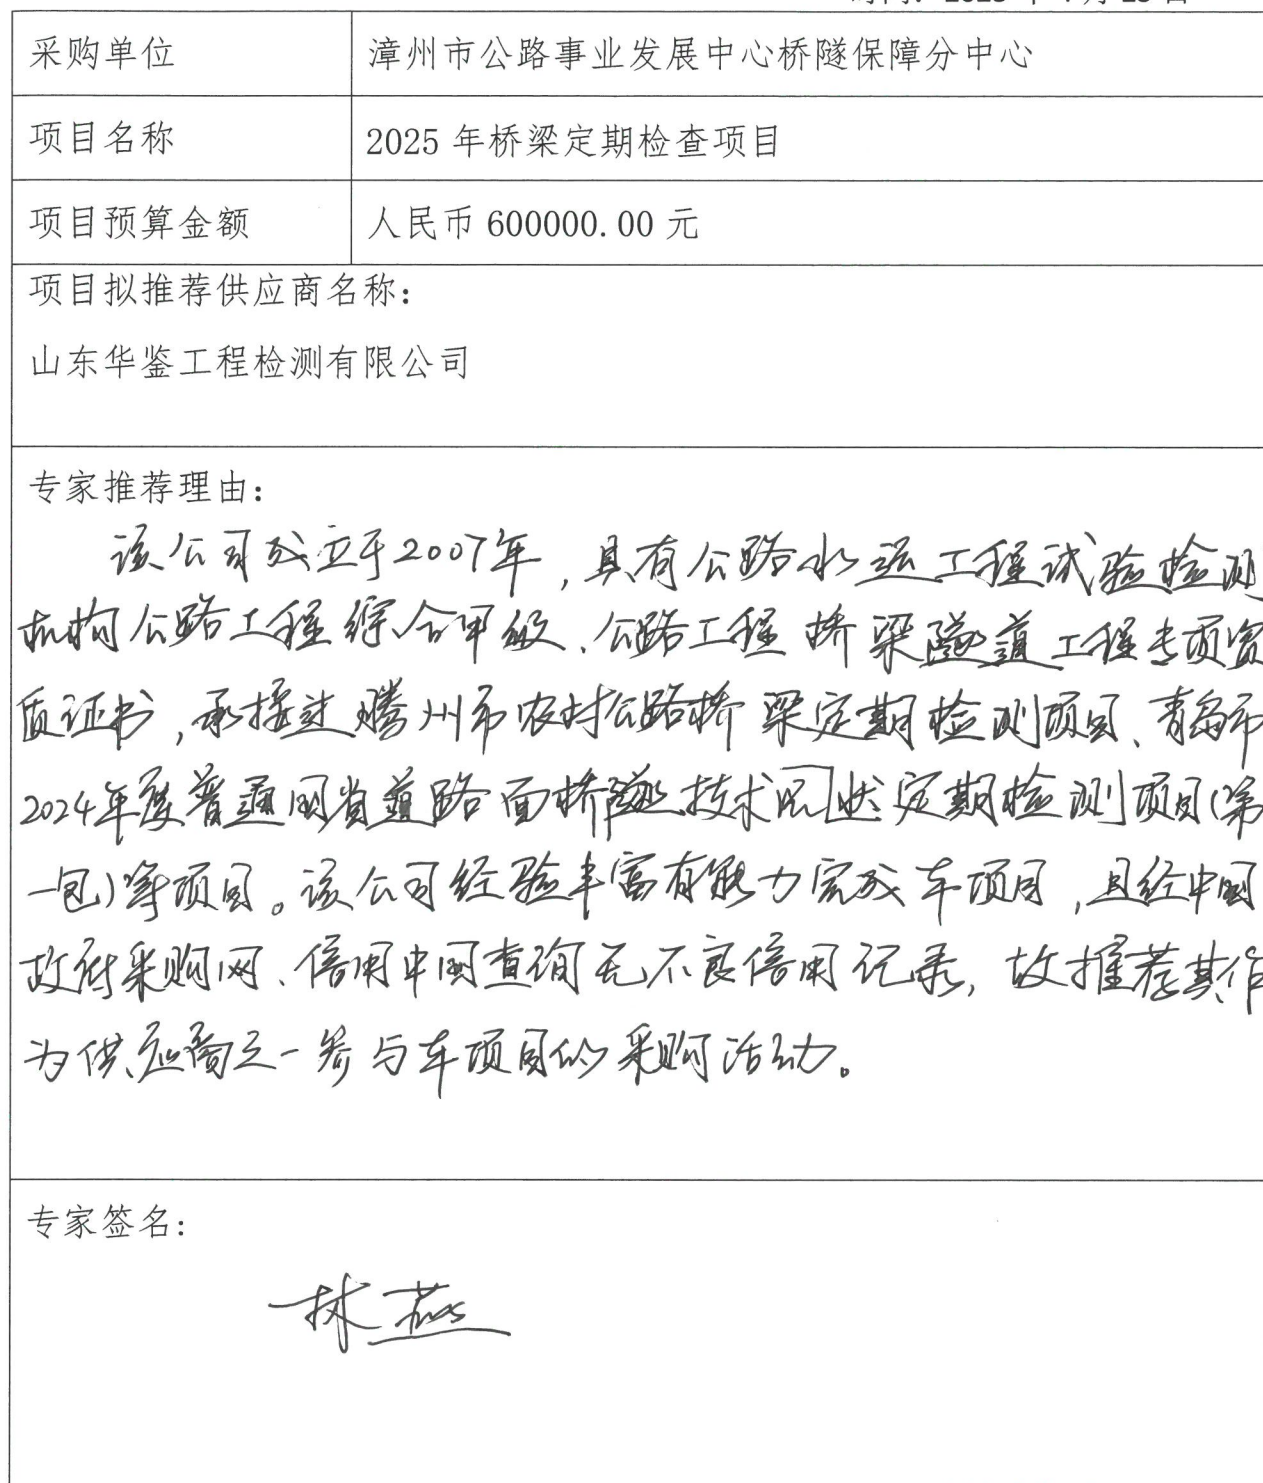 采购单位 漳州市公路事业发展中心桥隧保障分中心
项目名称 2025 年桥梁定期检查项目
项目预算金额 人民币 600000.00 元
项目拟推荐供应商名称：
山东华鉴工程检测有限公司
专家推荐理由：
该公司成立于2007年，具有公路水运工程试验检测
机构公路工程综合甲级、公路工程桥梁隧道工程专项资
质证书，承接过腾州市农村公路桥梁定期检测项目、青岛市
2024年度普通国省道路面桥隧技术状况定期检测项目（第
一包）等项目。该公司经验丰富有能力完成本项目，且经中国
政府采购网、信用中国查询无不良信用记录，故推荐其作
为供应商之一参与本项目的采购活动。
专家签名：
林燕